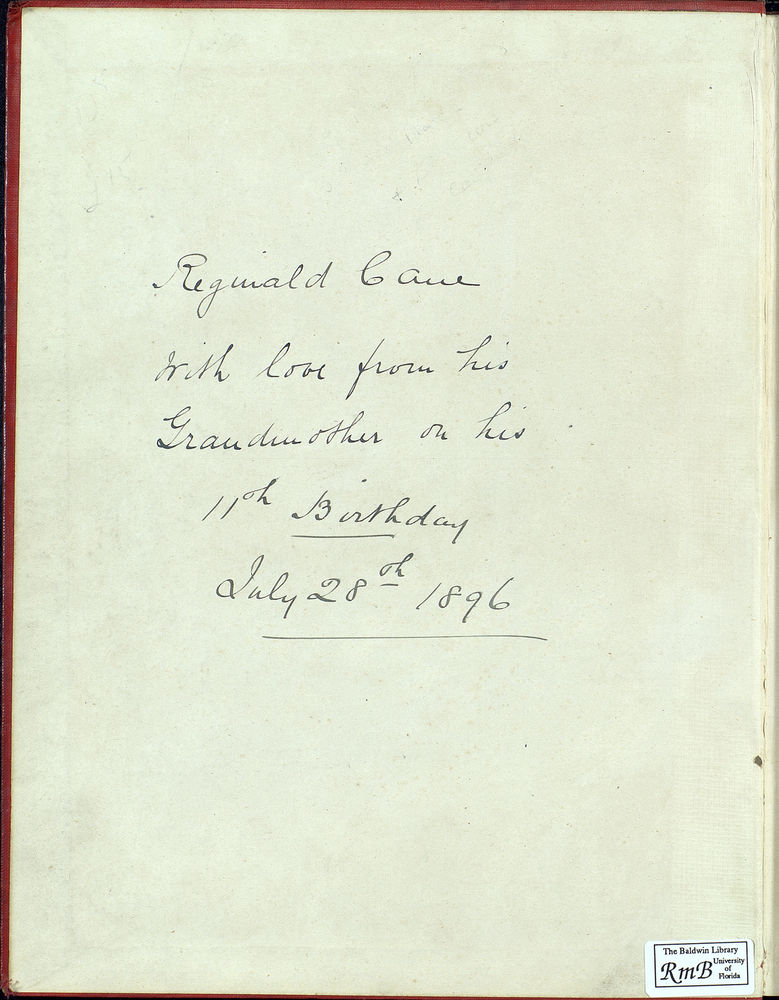 Reginald Cane
With love from his
Grandmother on his
11th Birthday
July 28th 1896
The Baldwin Library
RmB University of Florida